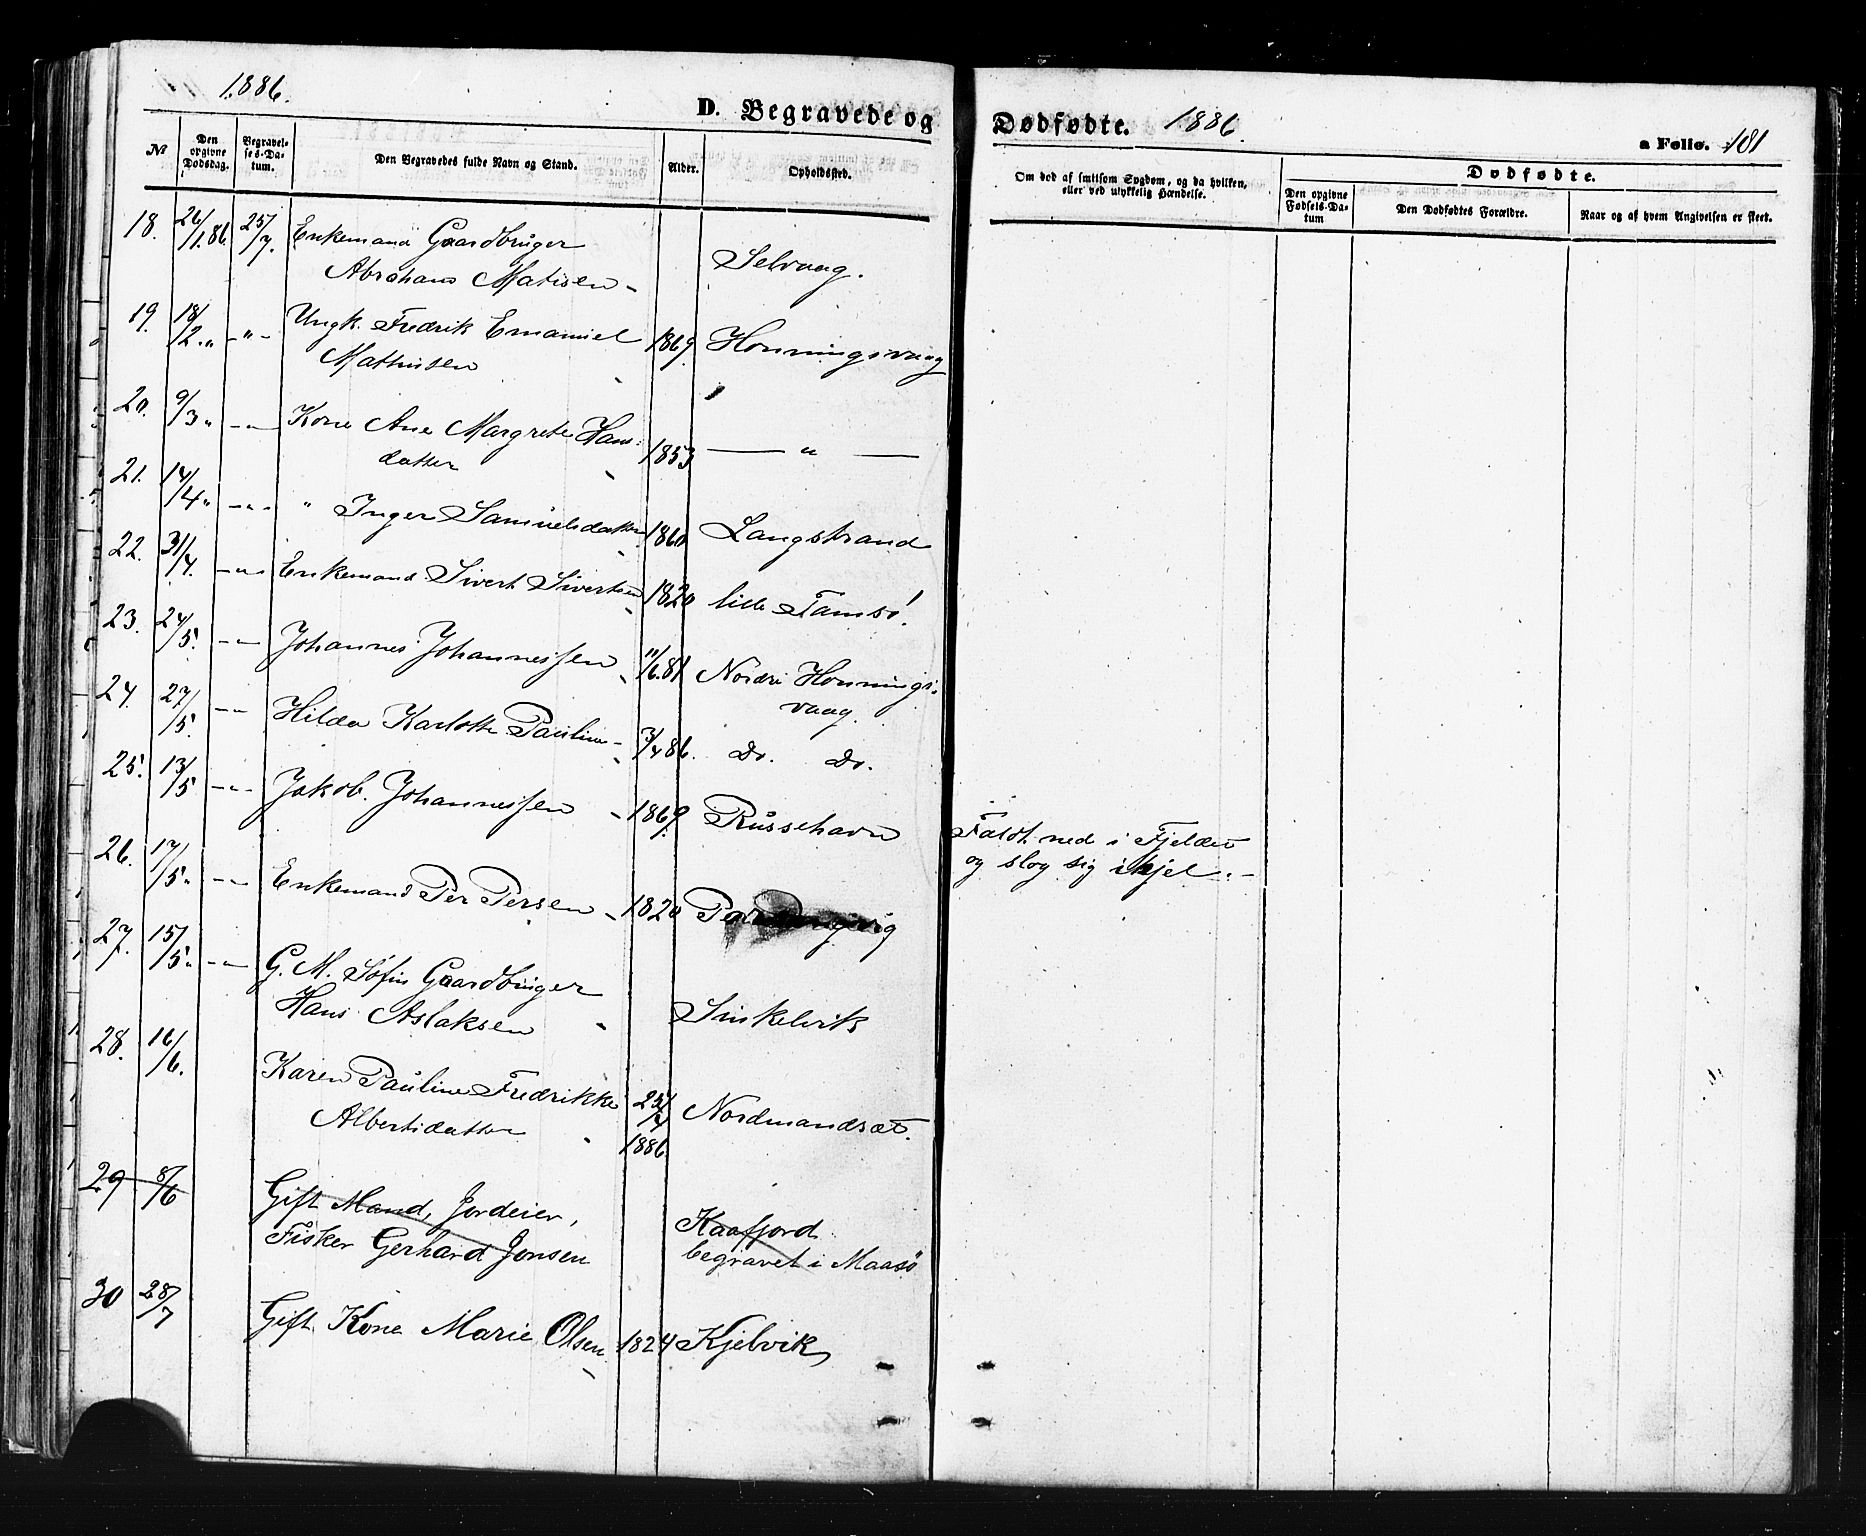 1886.
D. Begravede og
Dødfødte. 1886.
a Folio. 181
№
Den opgivne Dødsdag.
Begravelses-Datum.
Den Begravedes fulde Navn og Stand.
Alder.
Opholdssted.
Om død af smitsom Sygdom, og da hvilken,
eller ved ulykkelig Hændelse.
Dødfødte.
Den opgivne Fødsels-Datum
Den Dødfødtes Forældre.
Naar og af hvem Angivelsen er skeet.
18. 26/1.86 25/7. Enkemand Gaardbruger
Abraham Matisen - Selvaag.
19. 18/2 „ - „ - Ungk. Fredrik Emanuel 1869. Honningsvaag
Mathisen
20. 9/3 „ - „ - Kone Ane Margrete Hans- 1853 — „ —
datter
21. 14/4 „ - „ - " Inger Samuelsdatter 1860 Langstrand
22. 31/4. - „ - Enkemand Sivert Sivertsen 1820 lille Tamsø.
23. 24/5. - „ - Johannes Johannessen 11/6.81 Nordre Honnings-
vaag.
24. 27/5. - „ - Hilda Karlotte Pauline - 3/4 86. Do. Do.
25. 13/5 - „ - Jakob Johannessen - 1869. Russehavn Faldt ned i Fjeldet
og slog sig ihjel. -
26. 17/5 „ - „ - Enkemand Per Persen - 1820
27. 15/5 „ - „ - G. M. Søfin Gaardbruger
Hans Aslaksen Sinkelvik
28. 16/6. Karen Pauline Fredrikke 25/4 Nordmandsæt.
Albertsdatter 1886.
29 8/6 Gift Mand, Jordeier, Kaafjord
Fisker Gerhard Jonsen begravet i Maasø
30 28/7 Gift Kone Marie Olsen 1824 Kjelvik